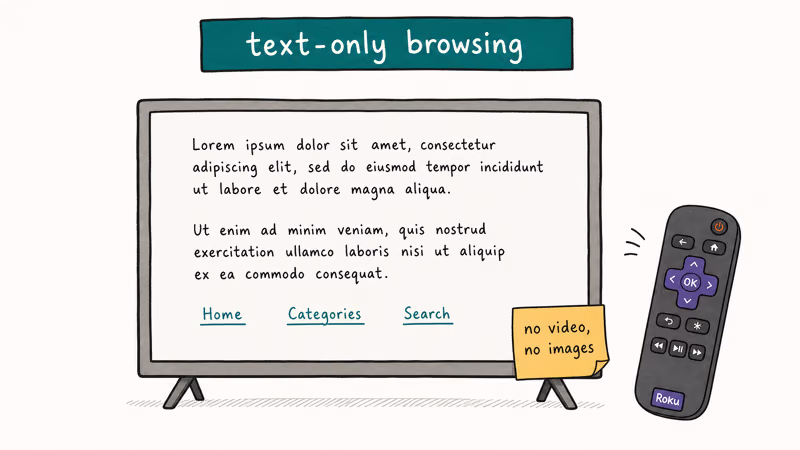 text-only browsing
Lorem ipsum dolor sit amet, consectetur
adipiscing elit, sed do eiusmod tempor incididunt
ut labore et dolore magna aliqua.
Ut enim ad minim veniam, quis nostrud
exercitation ullamco laboris nisi ut aliquip
ex ea commodo consequat.
Home Categories Search
no video,
no images
OK
Roku